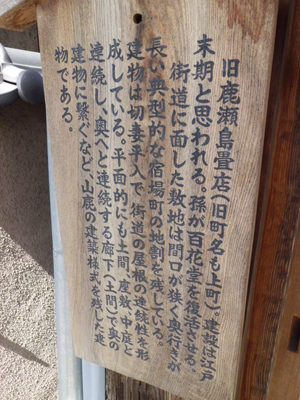 旧鹿瀬島畳店(旧町名も上町)。建設は江戸
末期と思われる。孫が百花堂を復活させる。
街道に面した敷地は間口が狭く奥行きが
長い典型的な宿場町の地割を残している。
建物は切妻平入で、街道の屋根の連続性を形
成している。平面的にも土間、座敷、中庭と
連続し、奥へと連続する廊下(土間)で奥の
建物に繋ぐなど、山鹿の建築様式を残した建
物である。